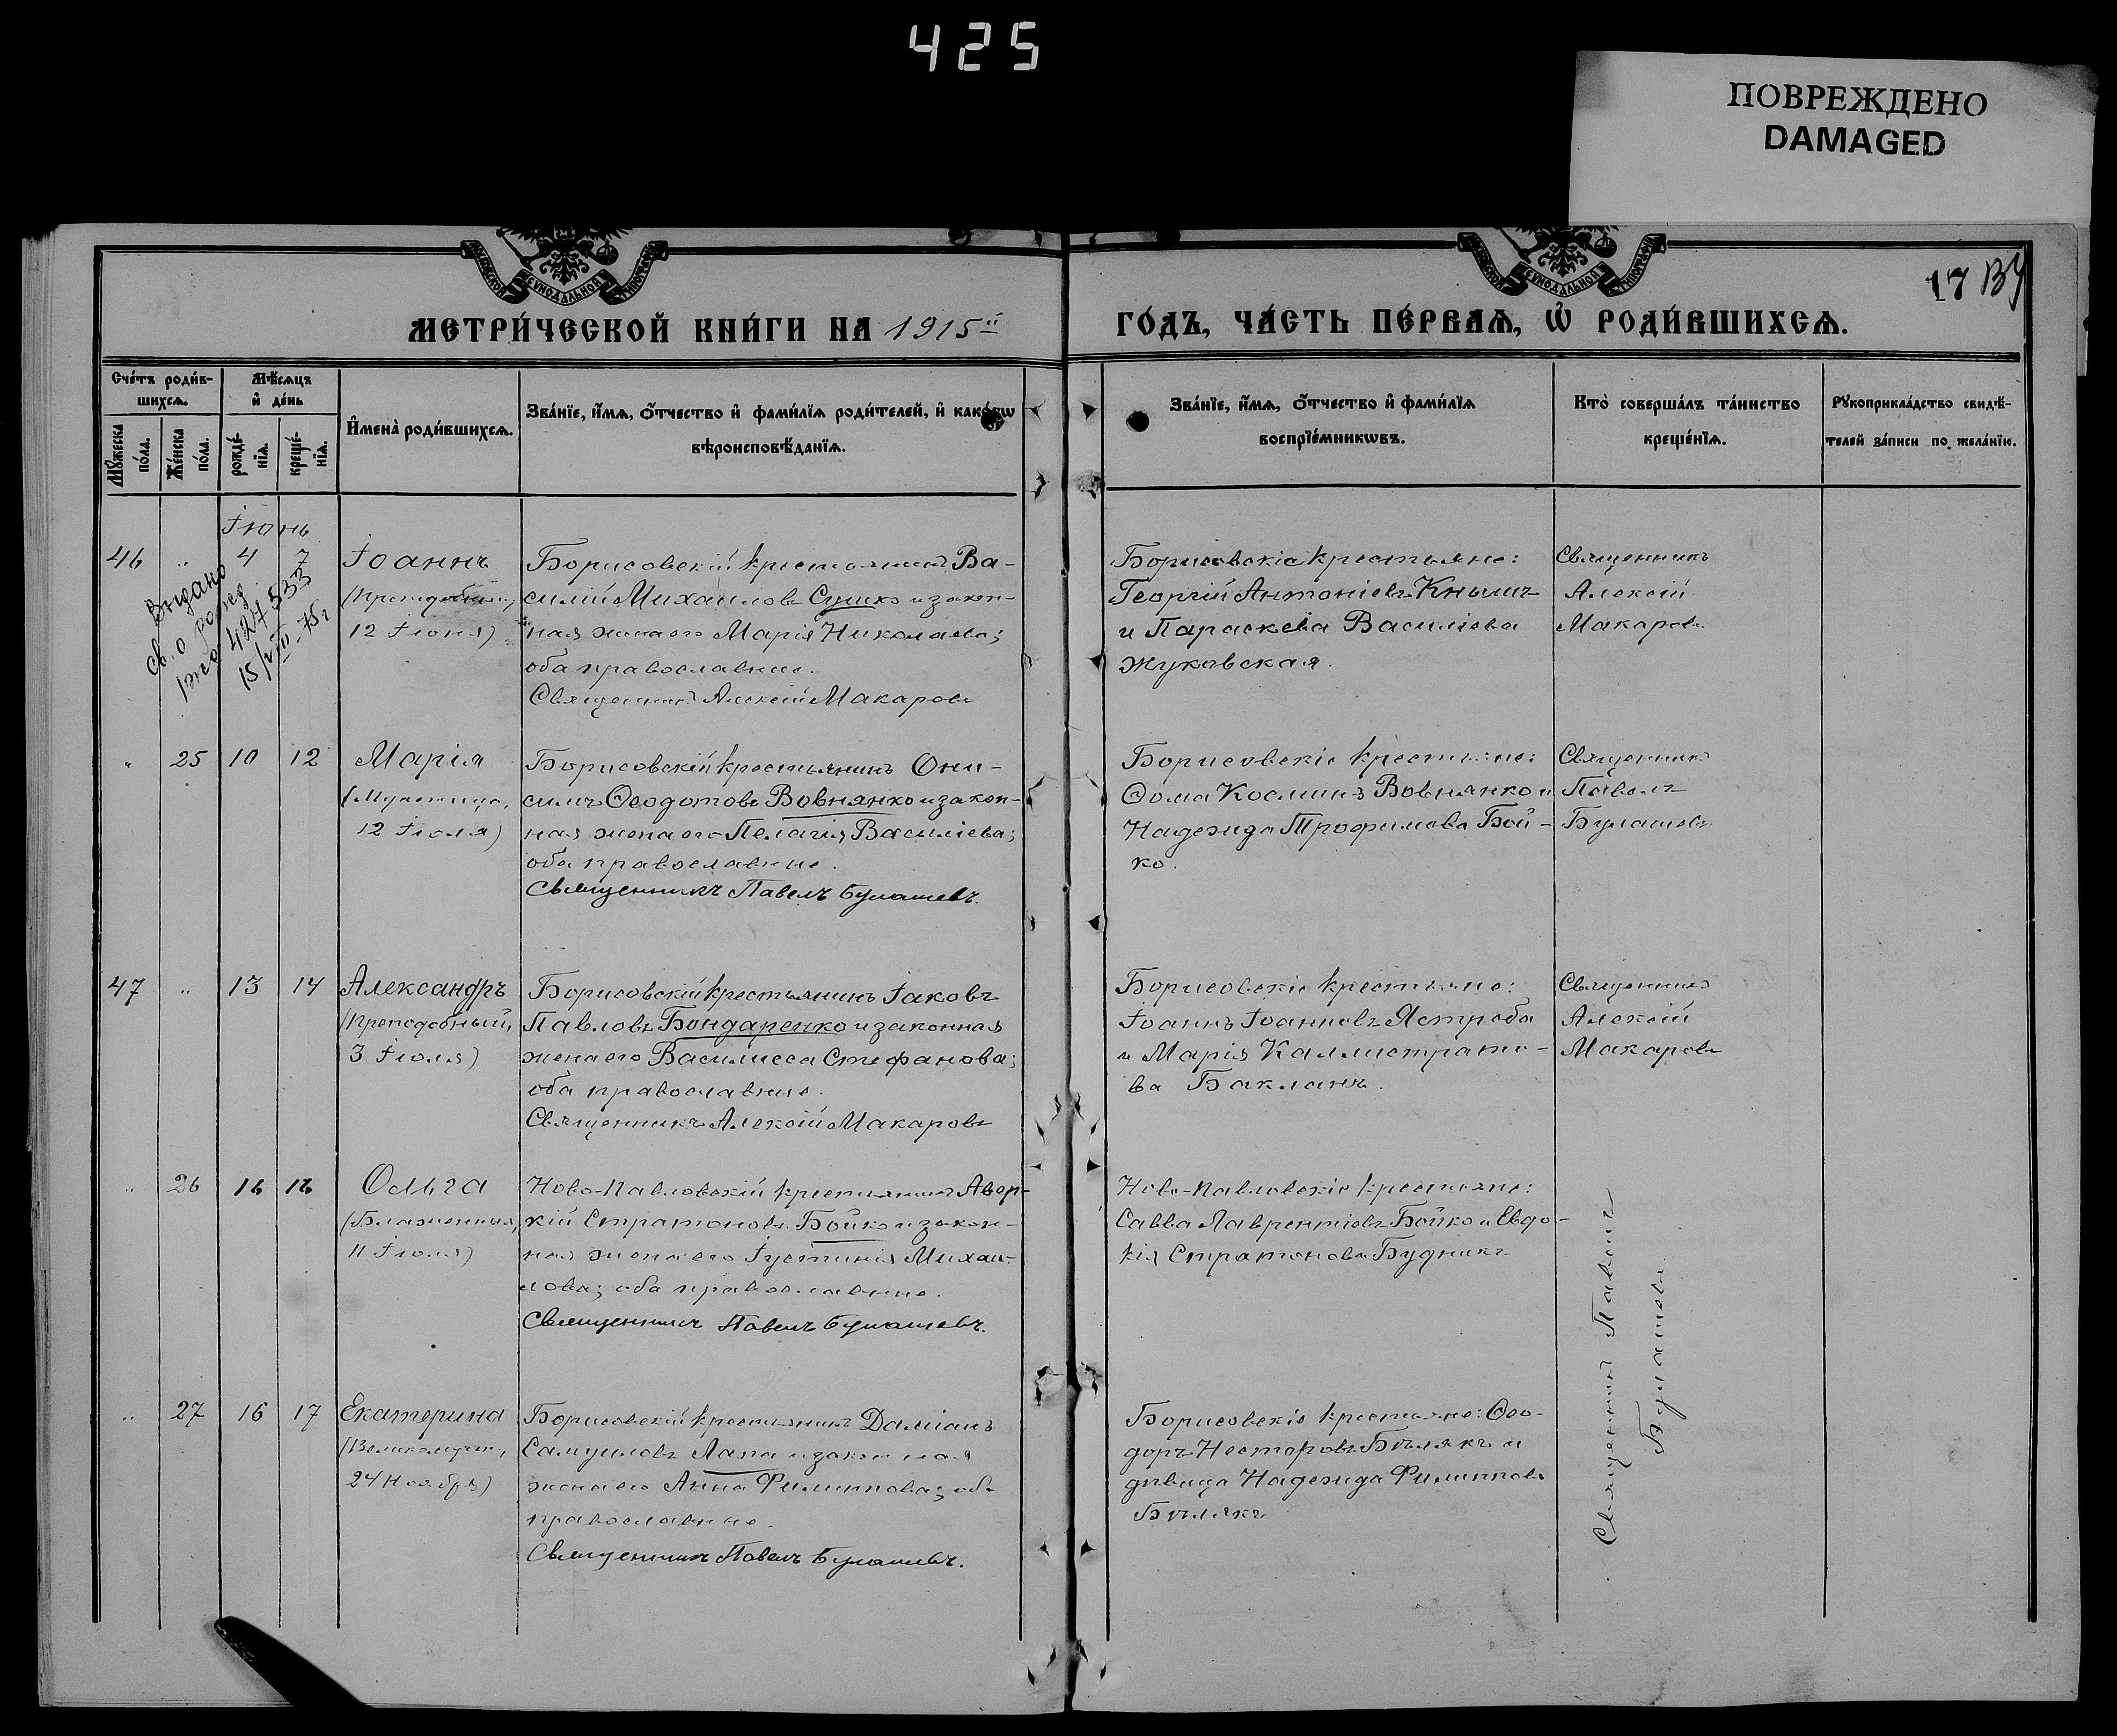 425
ПОВРЕЖДЕНО
DAMAGED
17 ВУ
МОСКОВСКОЙ СѴНОДАЛЬНОЙ ТИПОГРАФІИ
МОСКОВСКОЙ СѴНОДАЛЬНОЙ ТИПОГРАФІИ
МЕТРИ́ЧЕСКОЙ КНИ́ГИ НА 1915й
ГО́ДЪ, ЧА́СТЬ ПЕ́РВАѦ, Ѽ РОДИ́ВШИХСѦ.
Сче́тъ роди́в-
шихсѧ.
Мѣ́сѧцъ
и҆ де́нь
Мꙋ́жеска
по́ла.
Же́нска
по́ла.
рожде́-
нїѧ.
креще́-
нїѧ.
И҆мена̀ роди́вшихсѧ.
Зва́нїе, и҆́мѧ, ѻ҆́тчество и҆ фами́лїѧ роди́телей, и҆ како́гѡ
вѣроисповѣ́данїѧ.
Зва́нїе, и҆́мѧ, ѻ҆́тчество и҆ фами́лїѧ
воспрїе́мникѡвъ.
Кто̀ соверша́лъ та́инство
креще́нїѧ.
Рꙋкоприкла́дство свидѣ́-
телей за́писи по жела́нїю.
Іюнь
46 " 4 7 Іоаннъ
(Преподобный,
12 Іюня)
Выдано
св. о рожд.
427533
15/VII-75г
Борисовскій крестьянинъ Ва-
силій Михаиловъ Сушко и закон-
ная жена его Марія Николаева;
оба православные.
Священникъ Алексій Макаровъ
Борисовскіе крестьяне:
Георгій Антоніевъ Кнышъ
и Параскева Василіева
Жуковская.
Священникъ
Алексій
Макаровъ
" 25 10 12 Марія
(Мученица,
12 Іюля)
Борисовскій крестьянинъ Они-
симъ Ѳеодотовъ Вовнянко и закон-
ная жена его Пелагія Василіева;
оба православные.
Священникъ Павелъ Булашевъ.
Борисовскіе крестьяне:
Ѳома Косминъ Вовнянко и
Надежда Трофимова Бой-
ко.
Священникъ
Павелъ
Булашевъ
47 " 13 14 Александръ
(Преподобный,
3 Іюля)
Борисовскій крестьянинъ Іаковъ
Павловъ Бондаренко и законная
жена его Василисса Стефанова;
оба православные.
Священникъ Алексій Макаровъ
Борисовскіе крестьяне:
Іоаннъ Іоанновъ Ястреба
и Марія Каллистрато-
ва Бакланъ.
Священникъ
Алексій
Макаровъ
" 26 16 16 Ольга
(Блаженная,
11 Іюля)
Ново-Павловскій крестьянинъ Авер-
кій Стратоновъ Бойко и закон-
ная жена его Іустинія Михаи-
лова; оба православные.
Священникъ Павелъ Булашевъ.
Ново-Павловскіе крестьяне:
Савва Лаврентіевъ Бойко и Евдо-
кія Стратонова Будникъ
Священникъ Павелъ
Булашевъ
" 27 16 17 Екатерина
(Великомучен.,
24 Ноября)
Борисовскій крестьянинъ Даміанъ
Самуиловъ Лапа и законная
жена его Анна Филиппова; оба
православные.
Священникъ Павелъ Булашевъ.
Борисовскіе крестьяне: Ѳео-
доръ Несторовъ Бѣлякъ и
дѣвица Надежда Филиппова
Бѣлякъ